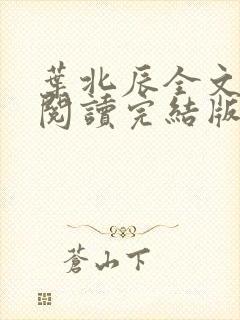 葉北辰全文
閱讀完結版
蒼山下